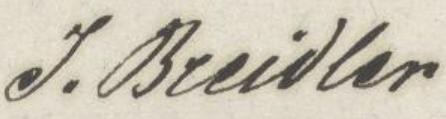 J. Breidler